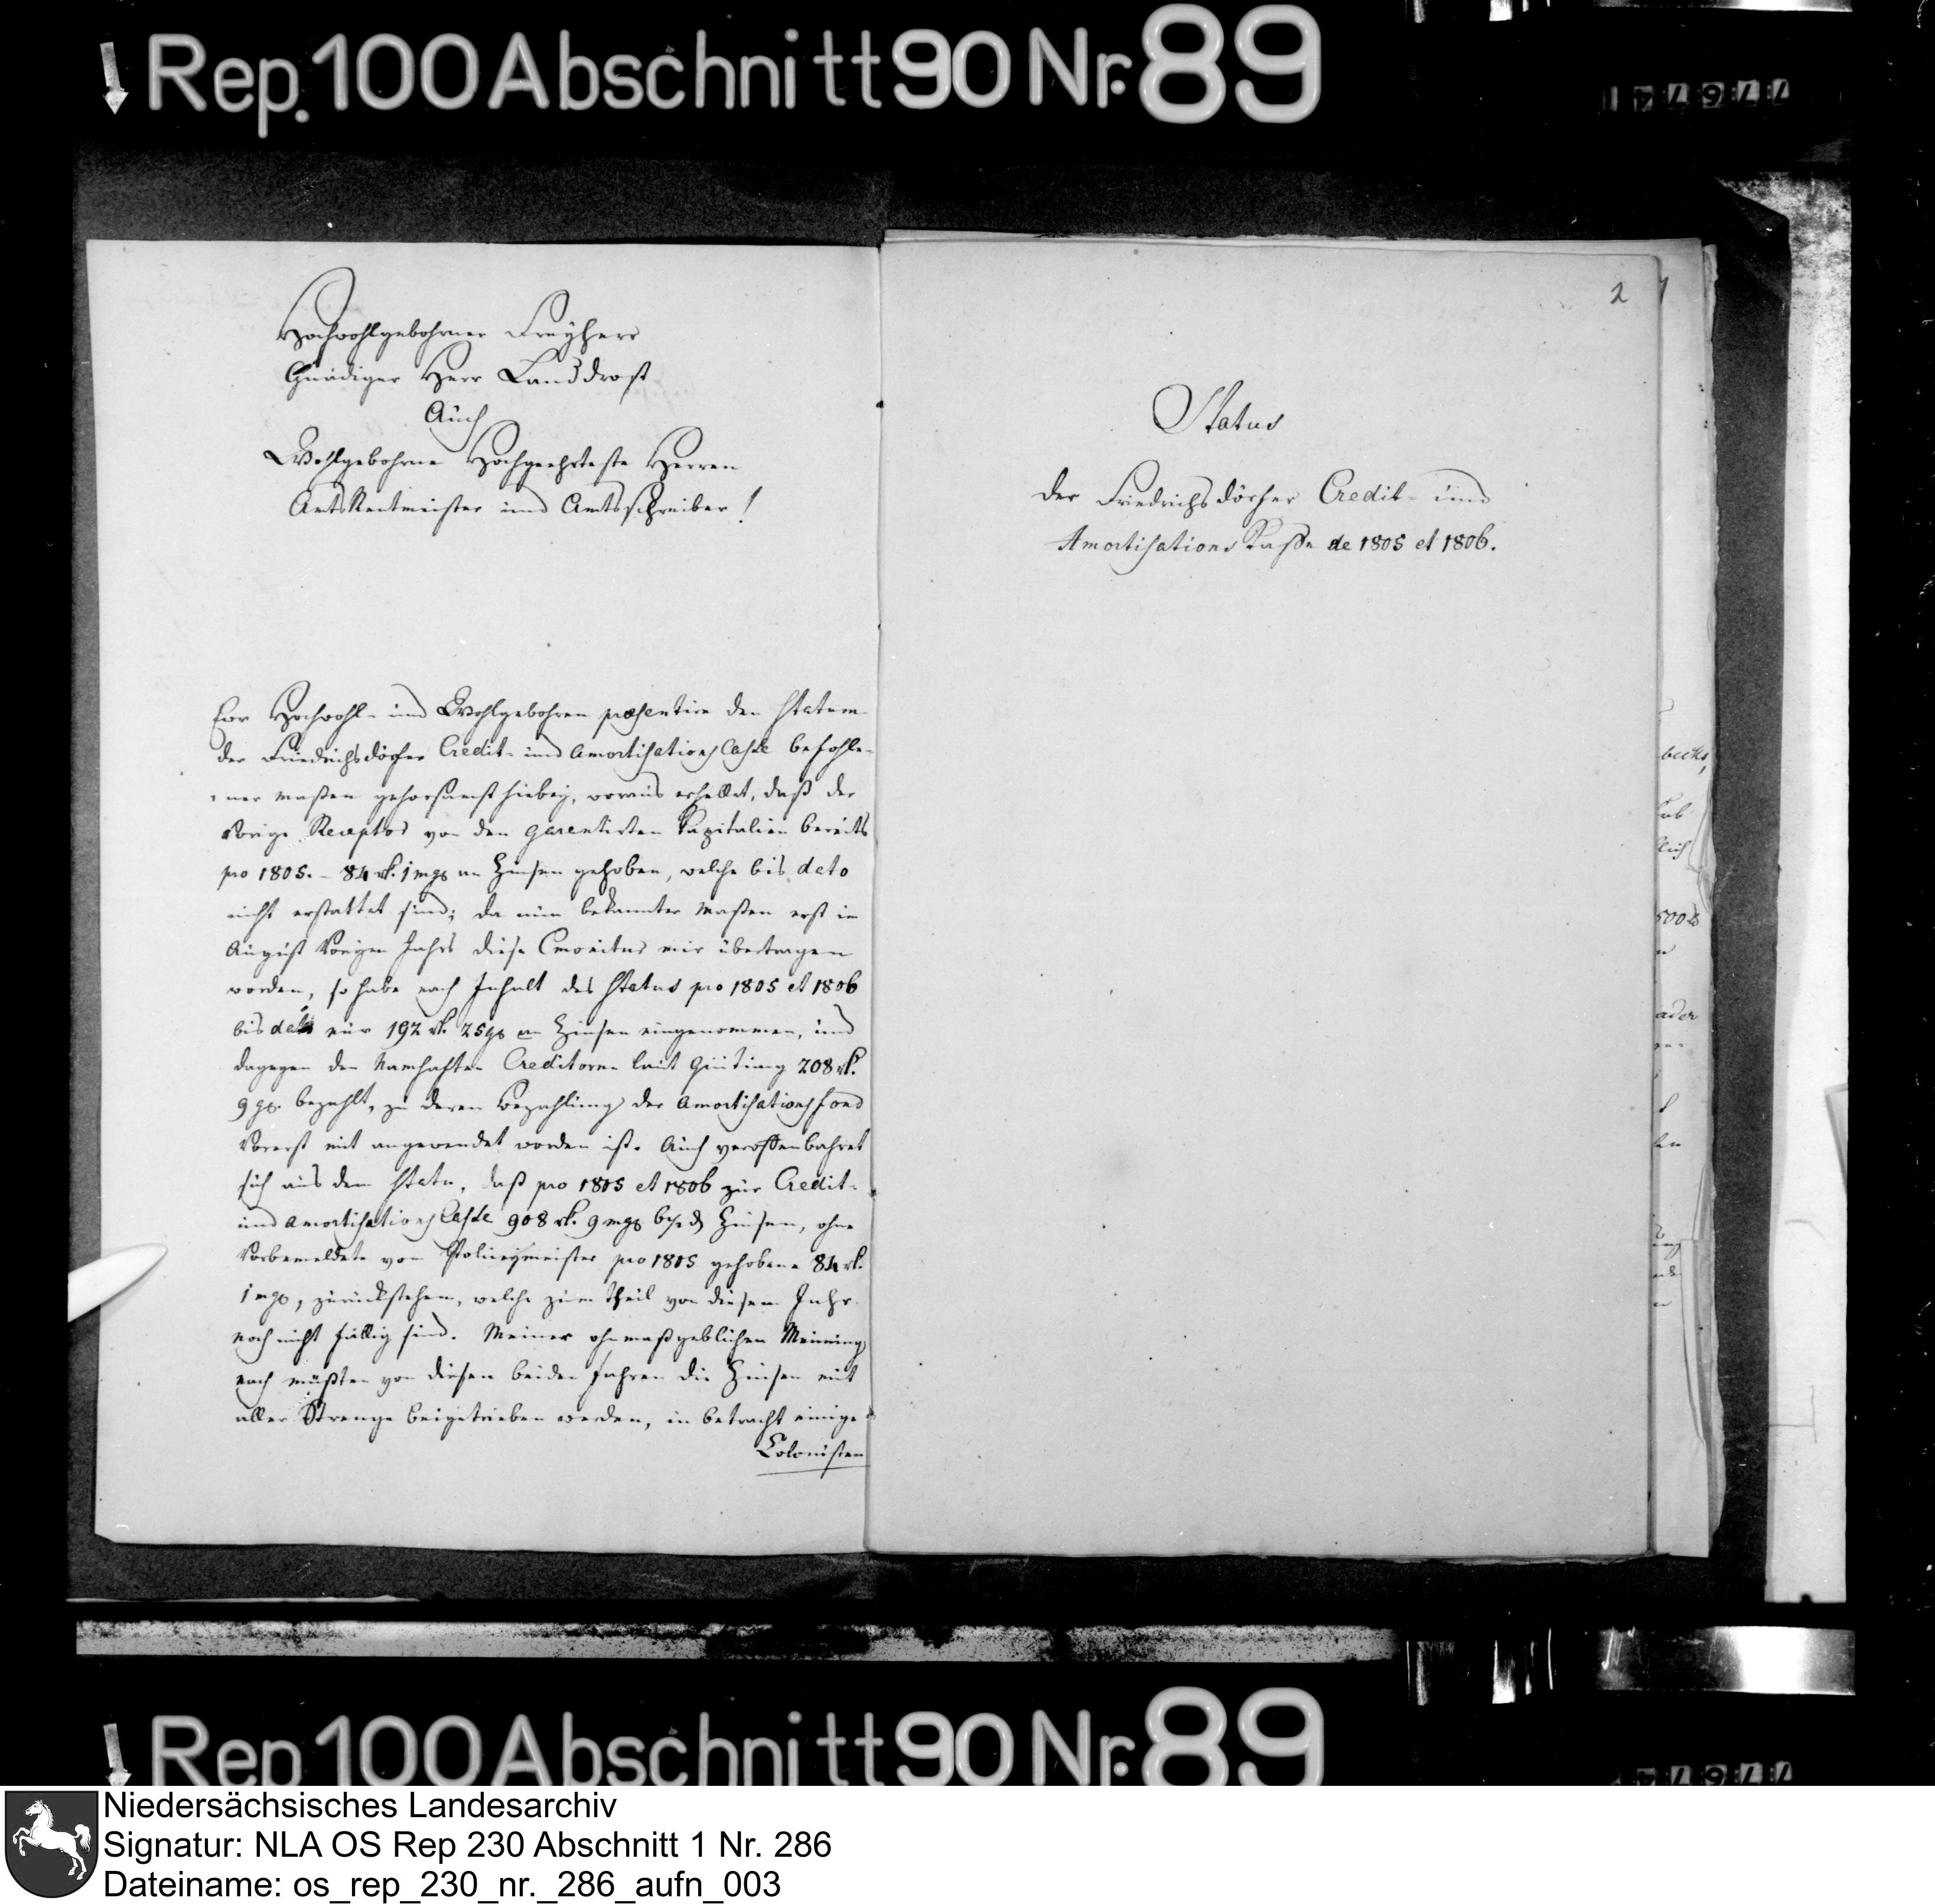 Rep. 100 Abschnitt 90 Nr. 89
Hochwohlgebohrner Freyherr
Gnädiger Herr Landdrost
Auch
Wohlgebohrne Hochgeehrteste Herren
Amts Rentmeister und Amtsschreiber!
Ew Hochwohl- und Wohlgebohren præsentire den Statum
der Friedrichsdörfer Credit- und Amortisations Casse befohle-
ner maßen gehorsamst hiebey, woraus erhellet, daß der
vorige Receptor von den garentirten Kapitalien bereits
pro 1805. - 84 rt. 1 mgr an Zinsen gehoben, welche bis dato
nicht erstattet sind; da nun bekannter maßen erst im
August vorigen Jahrs diese mir übertragen
worden, so habe nach Inhalt des Status pro 1805 et 1806
bis dato nur 192 rt. 25 gr an Zinsen eingenommen, und
dagegen den Namhaften Creditoren laut Quitung 208 rt.
9 gr. bezahlt, zu deren Bezahlung der Amortisationsfond
vorerst mit angewendet worden ist. Auch veroffenbahret
sich aus dem Statu, daß pro 1805 et 1806 zur Credit-
und Amortisations Casse 908 rt. 9 mgr Zinsen, ohne
vorbemeldete vom Policeymeister pro 1805 gehobene 84 rt.
1 mgr, zurückstehen, welche zum theil von diesem Jahr
noch nicht fällig sind. Meiner ohnmaßgeblichen Meinung
nach müßten von diesen beiden Jahren die Zinsen mit
aller Strenge beigetrieben werden, in betracht einige
Colonisten
2
Status
der Friedrichsdörfer Credit- und
Amortisations Kasse de 1805 et 1806.
Rep 100 Abschnitt 90 Nr. 89
Niedersächsisches Landesarchiv
Signatur: NLA OS Rep 230 Abschnitt 1 Nr. 286
Dateiname: os_rep_230_nr._286_aufn_003